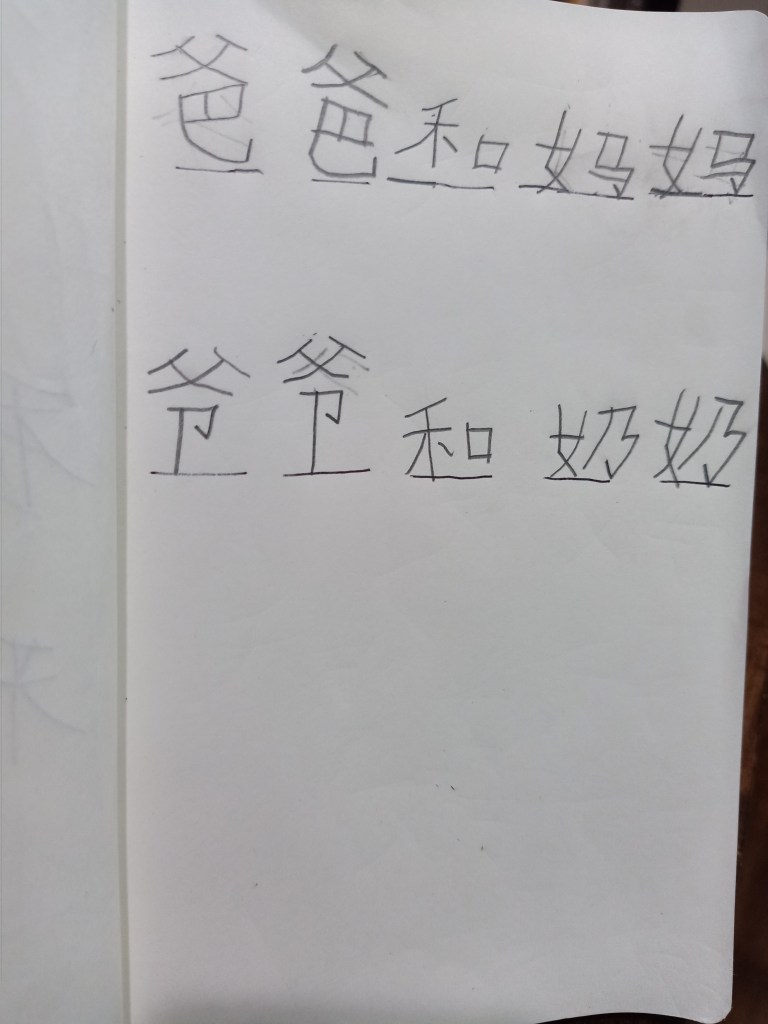 爸爸和妈妈
爷爷和奶奶